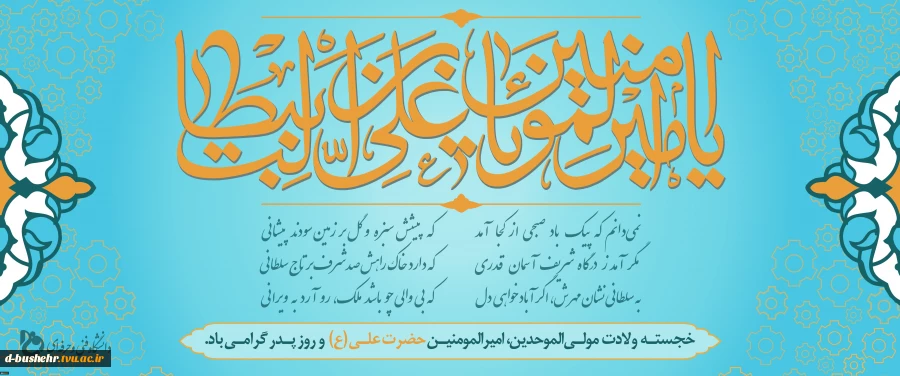 یا امیرالمومنین یا علی بن ابیطالب
نمی‌دانم که پیک باد صبحی از کجا آمد
که پیشش سبزه و گل بر زمین سودند پیشانی
مگر آمد ز درگاه شریف آسمان قدری
که دارد خاک راهش صد شرف بر تاج سلطانی
به سلطانی نشان مهرش، اگر آباد خواهی دل
که بی والی چو باشد ملک، رو آرد به ویرانی
خجسته ولادت مولی‌الموحدین، امیرالمومنین حضرت علی (ع) و روز پدر گرامی باد.
دانشگاه فنی و حرفه‌ای
d-bushehr.tvu.ac.ir